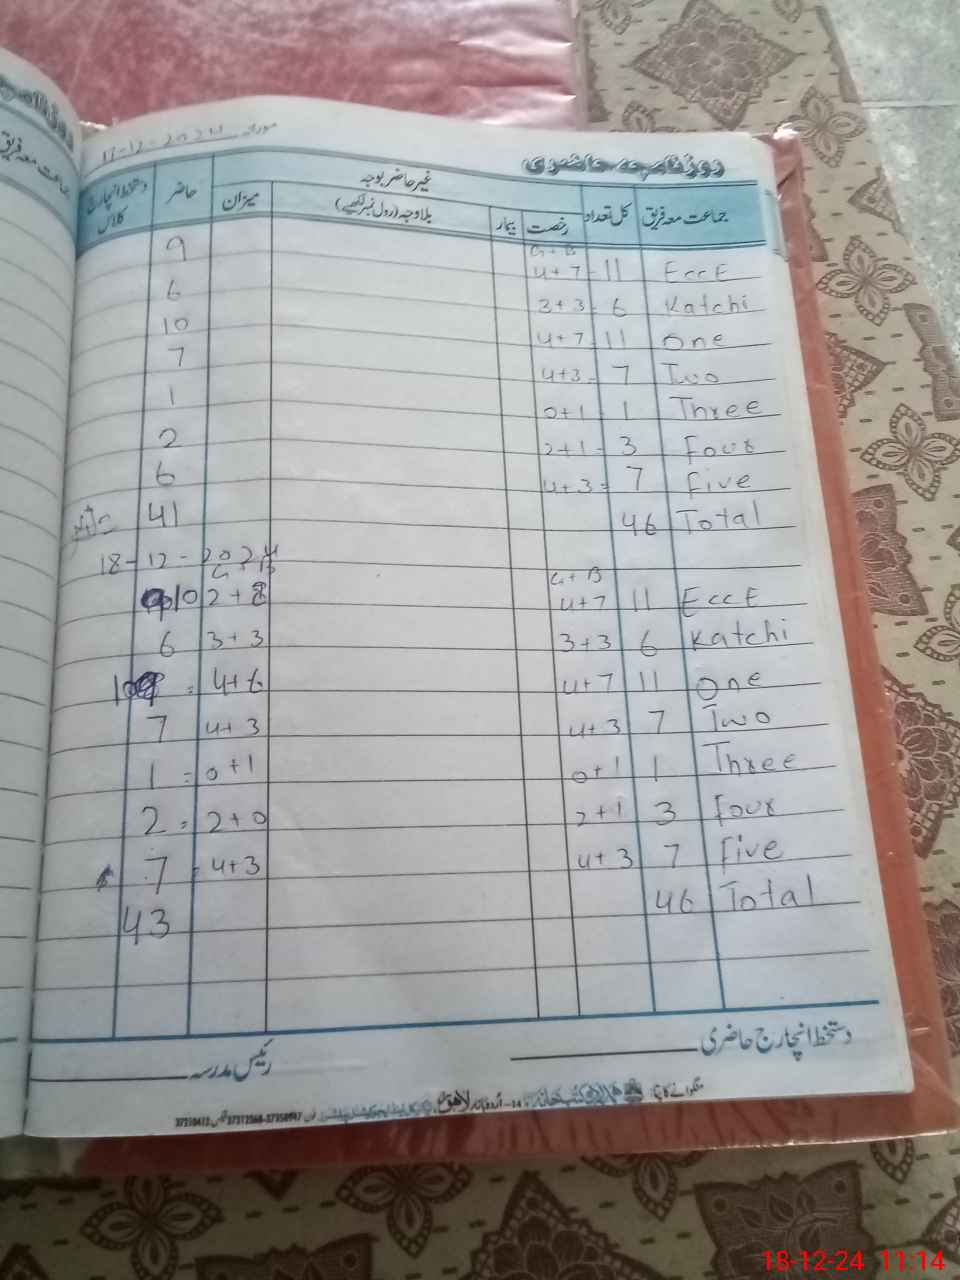 مورخہ 17-12-2024
روزنامچہ حاضری
جماعت معہ فریق کل تعداد رخصت بیمار بلاوجہ (رول نمبر لکھیے) میزان حاضر دستخط انچارج کلاس
غیر حاضر بوجہ
G + B
EccE 11 4+7 9
Katchi 6 3+3 6
One 11 4+7 10
Two 7 4+3 7
Three 1 0+1 1
Four 3 2+1 2
Five 7 4+3= 6
Total 46 41
18-12-2024
G + B G B
EccE 11 4+7 2+8 10
Katchi 6 3+3 3+3 6
One 11 4+7 4+6 = 10
Two 7 4+3 4+3 7
Three 1 0+1 0+1 = 1
Four 3 2+1 2+0 = 2
Five 7 4+3 4+3 = 7
Total 46 43
دستخط انچارج حاضری
رئیس مدرسہ
منگوانے کا پتہ:
18-12-24 11:14